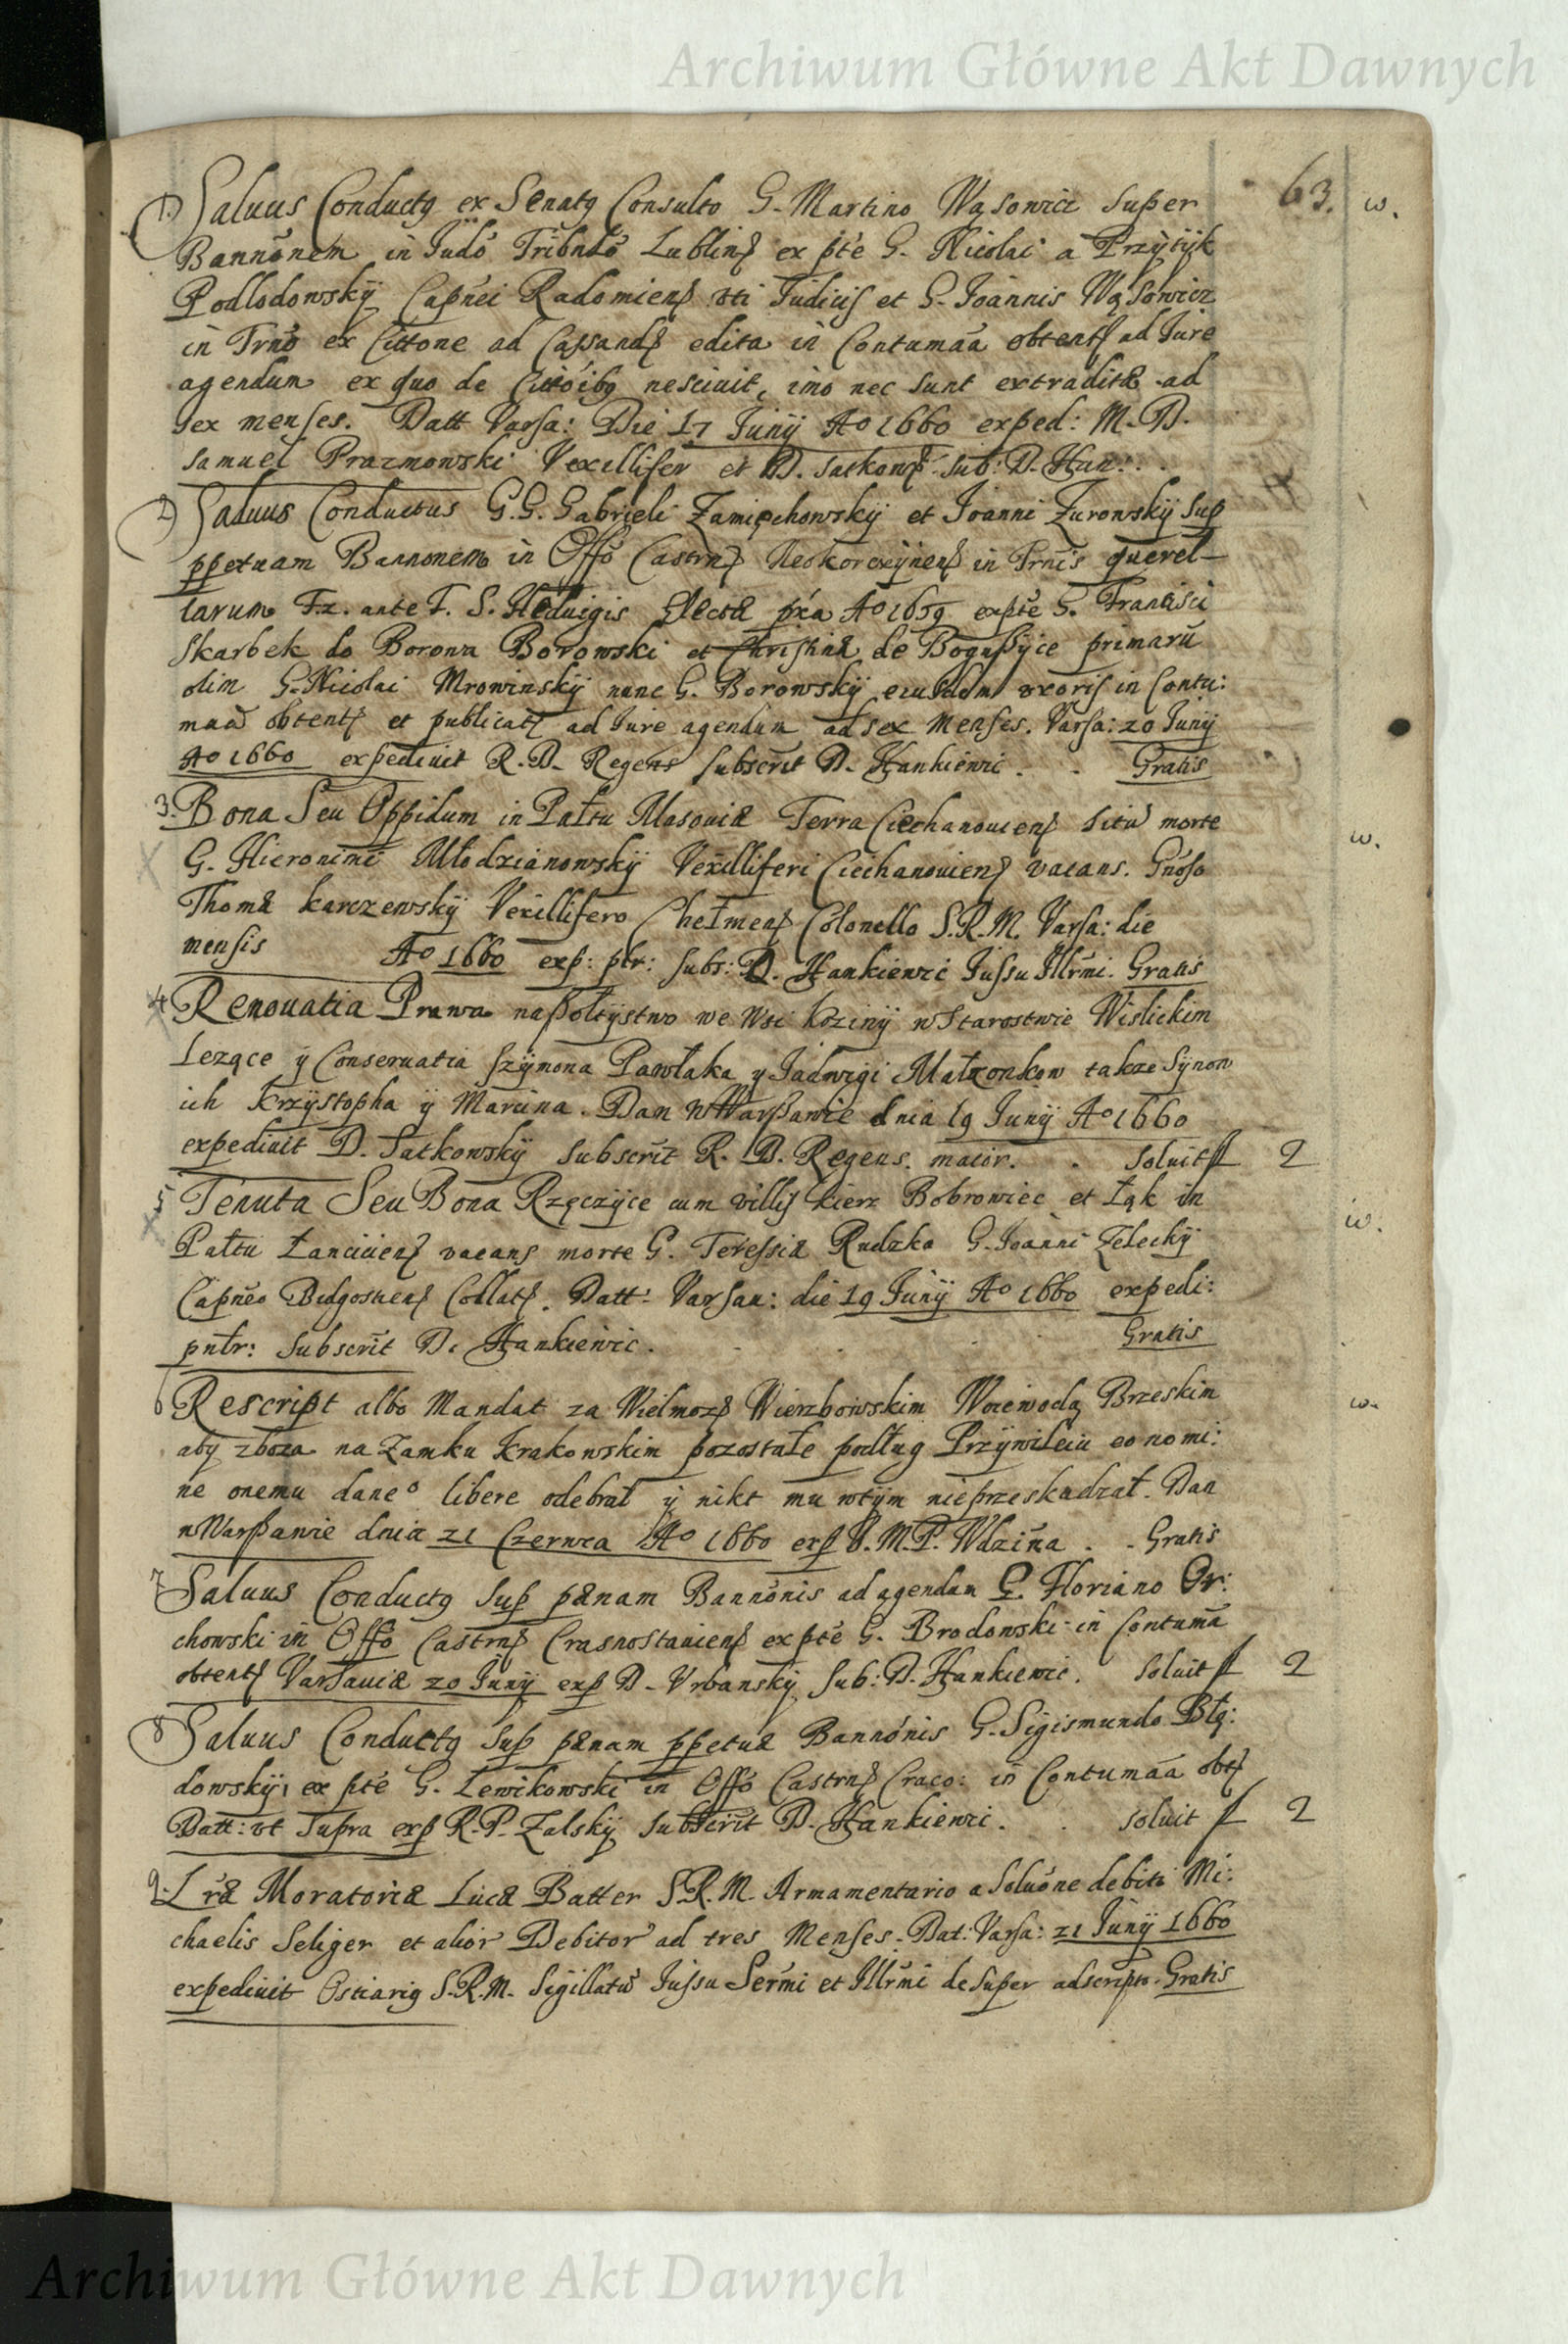 Archiwum Główne Akt Dawnych
63. w.
1) Saluus Conductq ex Senatq Consulto G. Martino Wąsowicz Super
Bannōnem in Judō Tribnlō Lublinſ ex pte G. Nicolai a Przÿtÿk
Podlodowskÿ Capnei Radomienſ vti Judicis et G. Joannis Wąsowicz
in Trno ex Cittone ad Cassandſ edita in Contumaā obtentſ ad Jure
agendum ex quo de Cittōibq nesciuit, imo nec sunt extraditæ ad
sex menses. Datt Varsa: Die 17 Junÿ Ao 1660 exped: M. D.
Samuel Prazmowski Vexillifer et D. Satkowſ. Sub: D. Han:
2) Saluus Conductus G.G. Gabrieli Zamięchowskÿ et Joanni Zurowskÿ Sup
ppetuam Bannonem in Offō Castrnſ Neokorczÿnenſ in Trnis querel-
larum F.2. ante F. S. Heduigis Electæ pxa Ao 1659 expte G. Francisci
Skarbek do Borowa Borowski et Christinæ de Bogussÿce primarū
olim G. Nicolai Mrowinskÿ nunc G. Borowskÿ eiusdem vxoris in Contu:
maā obtentſ et publicatſ ad Jure agendum ad sex Menses. Varsa: 20 Junÿ
Ao 1660 expediuit R. D. Regens subscrit D. Hankiewic. Gratis
3. Bona Seu Oppidum in Pałtu Masouiæ Terra Ciechanouienſ situ morte w.
G. Hieronimi Młodzianowskÿ Vexilliferi Ciechanouienſ vacans. Gnoso
Thomæ karczewskÿ Vexillifero Chełmenſ Colonello S.R.M. Varsa: die
mensis Ao 1660 exp: ptr: subs: D. Hankiewic Jussu Jllrmi. Gratis
4 Renouatia Prawa naßołtÿstwo we Wsi kozinÿ w Starostwie Wislickim
Lezące ÿ Conseruatia Szÿmona Pawłaka y Jadwigi Małzonkow takze Sÿnow
ich krzÿstopha ÿ Marcina. Dan w Warßawie dnia 19 Junÿ Ao 1660
expediuit D. Satkowskÿ subscrit R. D. Regens. maior. soluit f 2
5 Tenuta Seu Bona Rzęczÿce cum villis kierz Bobrowiec et Łąk in
Pałtu Łanciciienſ vacans morte G. Teressiæ Rudzka G. Joanni Zeleckÿ w.
Capneo Bidgostienſ Collatſ. Datt. Varsau: die 19 Junÿ Ao 1660 expedi:
pntr: subscrit D. Hankiewic. Gratis
6 Rescript albo Mandat za Wielmozſ Wierzbowskim Woiewodą Brzeskim w.
aby zboza na Zamku krakowskim pozostałe podług Przÿwileiu eo nomi:
ne onemu daneo libere odebrał ÿ nikt mu wtÿm nieprzeskadzał. Dan
w Warßawie dnia 21 Czerwca Ao 1660 exp J.M.P. Wdzina. Gratis
7 Saluus Conductq Sup pænam Bannonis ad agendum G. Floriano Or:
chowski in Offo Castrnſ Crasnostauienſ ex pte G. Brodowski in Contumā
obtentſ Varsauiæ 20 Junÿ exp D. Vrbanskÿ Sub: D. Hankiewic. soluit f 2
8 Saluus Conductq Sup pænam ppetuæ Bannonis G. Sigismundo Błę:
dowskÿ, ex pte G. Lewikowski in Offo Castrnſ Craco: in Contumaā obtſ
Datt: vt Supra exp R. P. Zalskÿ subscrit D. Hankiewic. soluit f 2
9. Lræ Moratoriæ Lucæ Batter S.R.M. Armamentario a Soluone debiti Mi:
chaelis Seliger et alior Debitor ad tres Menses. Dat: Varsa: 21 Junÿ 1660
expediuit Ostiariq S.R.M. Sigillatū Jussu Sermi et Jllrmi desuper adscripto. Gratis
Archiwum Główne Akt Dawnych